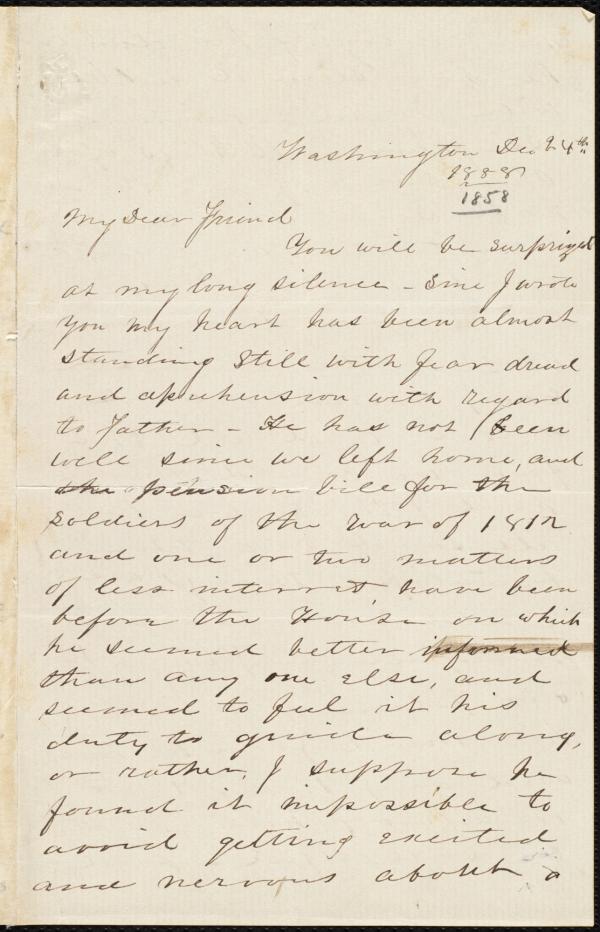 Washington Dec 24th
1888
1858
My Dear Friend
You will be surprized
at my long silence - Sine I wrote
you my heart has been almost
standing still with fear dread
and aprehension with regard
to Father - He has not been
well since we left home, and
the a pension bill for the
soldiers of the war of 1812
and one or two matters
of less interest have been
before the House on which
he seemed better informed
than any one else, and
seemed to feel it his
duty to guide along,
or rather, I suppose he
found it impossible to
avoid getting excited
and nervous about